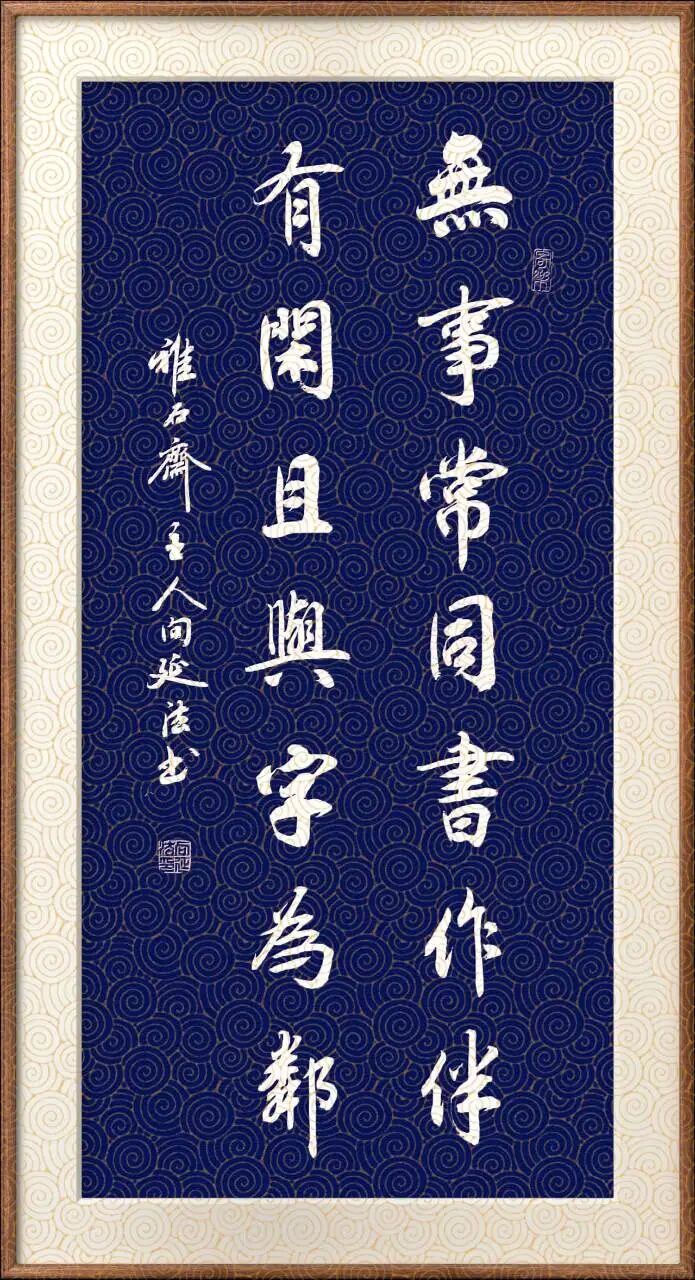 無事常同書作伴
有閑且與字為鄰
雅石齋主人向延法書